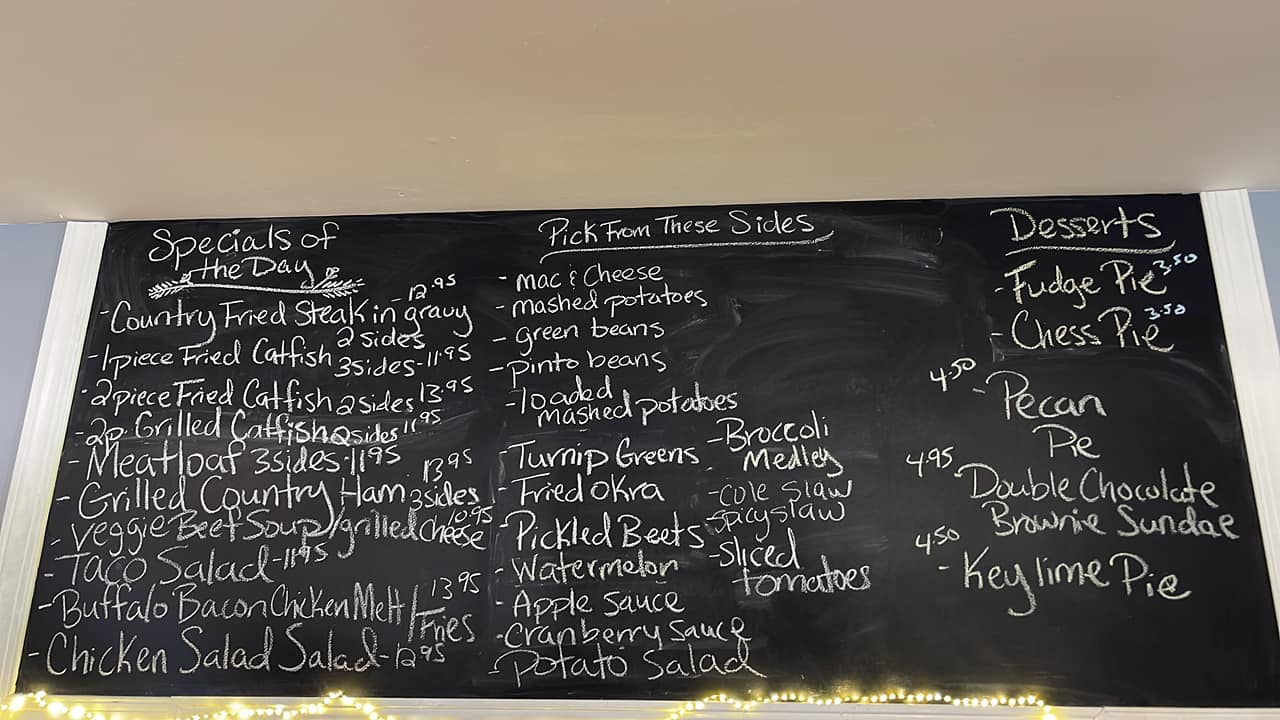 Specials of
the Day
-Country Fried Steak in gravy -12.95
2 sides
-1 piece Fried Catfish 3sides-11.95
-2 piece Fried Catfish 2 sides 13.95
-2p Grilled Catfish 2sides 11.95
-Meatloaf 3sides-11.95
-Grilled Country Ham 3sides 13.95
-Veggie Beef Soup/grilled cheese 10.95
-Taco Salad-11.95
-Buffalo Bacon Chicken Melt/Fries 13.95
-Chicken Salad Salad-12.95
Pick From These Sides
-Mac & Cheese
-mashed potatoes
-green beans
-pinto beans
-loaded
mashed potatoes
-Turnip Greens
-Fried Okra
-Pickled Beets
-Watermelon
-Apple Sauce
-Cranberry Sauce
-Potato Salad
-Broccoli
Medley
-cole slaw
-spicy slaw
-Sliced
tomatoes
Desserts
-Fudge Pie 3.50
-Chess Pie 3.50
4.50 -Pecan
Pie
4.95 -Double Chocolate
Brownie Sundae
4.50 -Key lime Pie